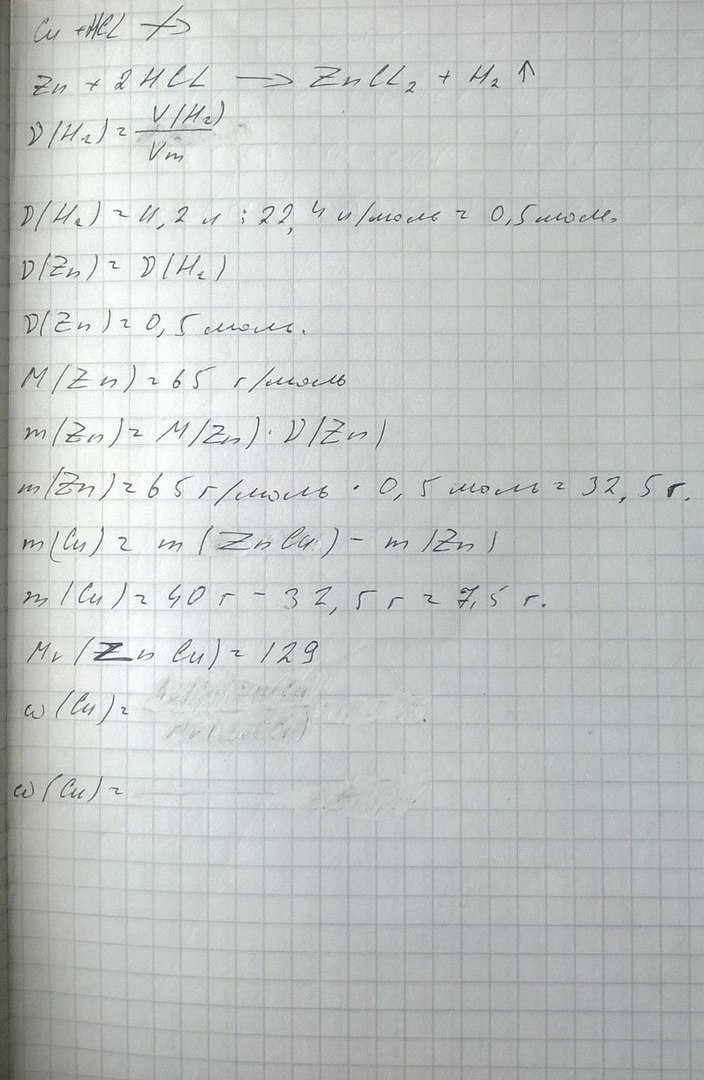 Cu + HCl ↛
Zn + 2HCl → ZnCl₂ + H₂↑
ν(H₂) = V(H₂) / Vm
ν(H₂) = 11,2 л : 22,4 л/моль = 0,5 моль.
ν(Zn) = ν(H₂)
ν(Zn) = 0,5 моль.
M(Zn) = 65 г/моль
m(Zn) = M(Zn) · ν(Zn)
m(Zn) = 65 г/моль · 0,5 моль = 32,5 г.
m(Cu) = m(ZnCu) - m(Zn)
m(Cu) = 40 г - 32,5 г = 7,5 г.
Mr(ZnCu) = 129
ω(Cu) =
ω(Cu) =